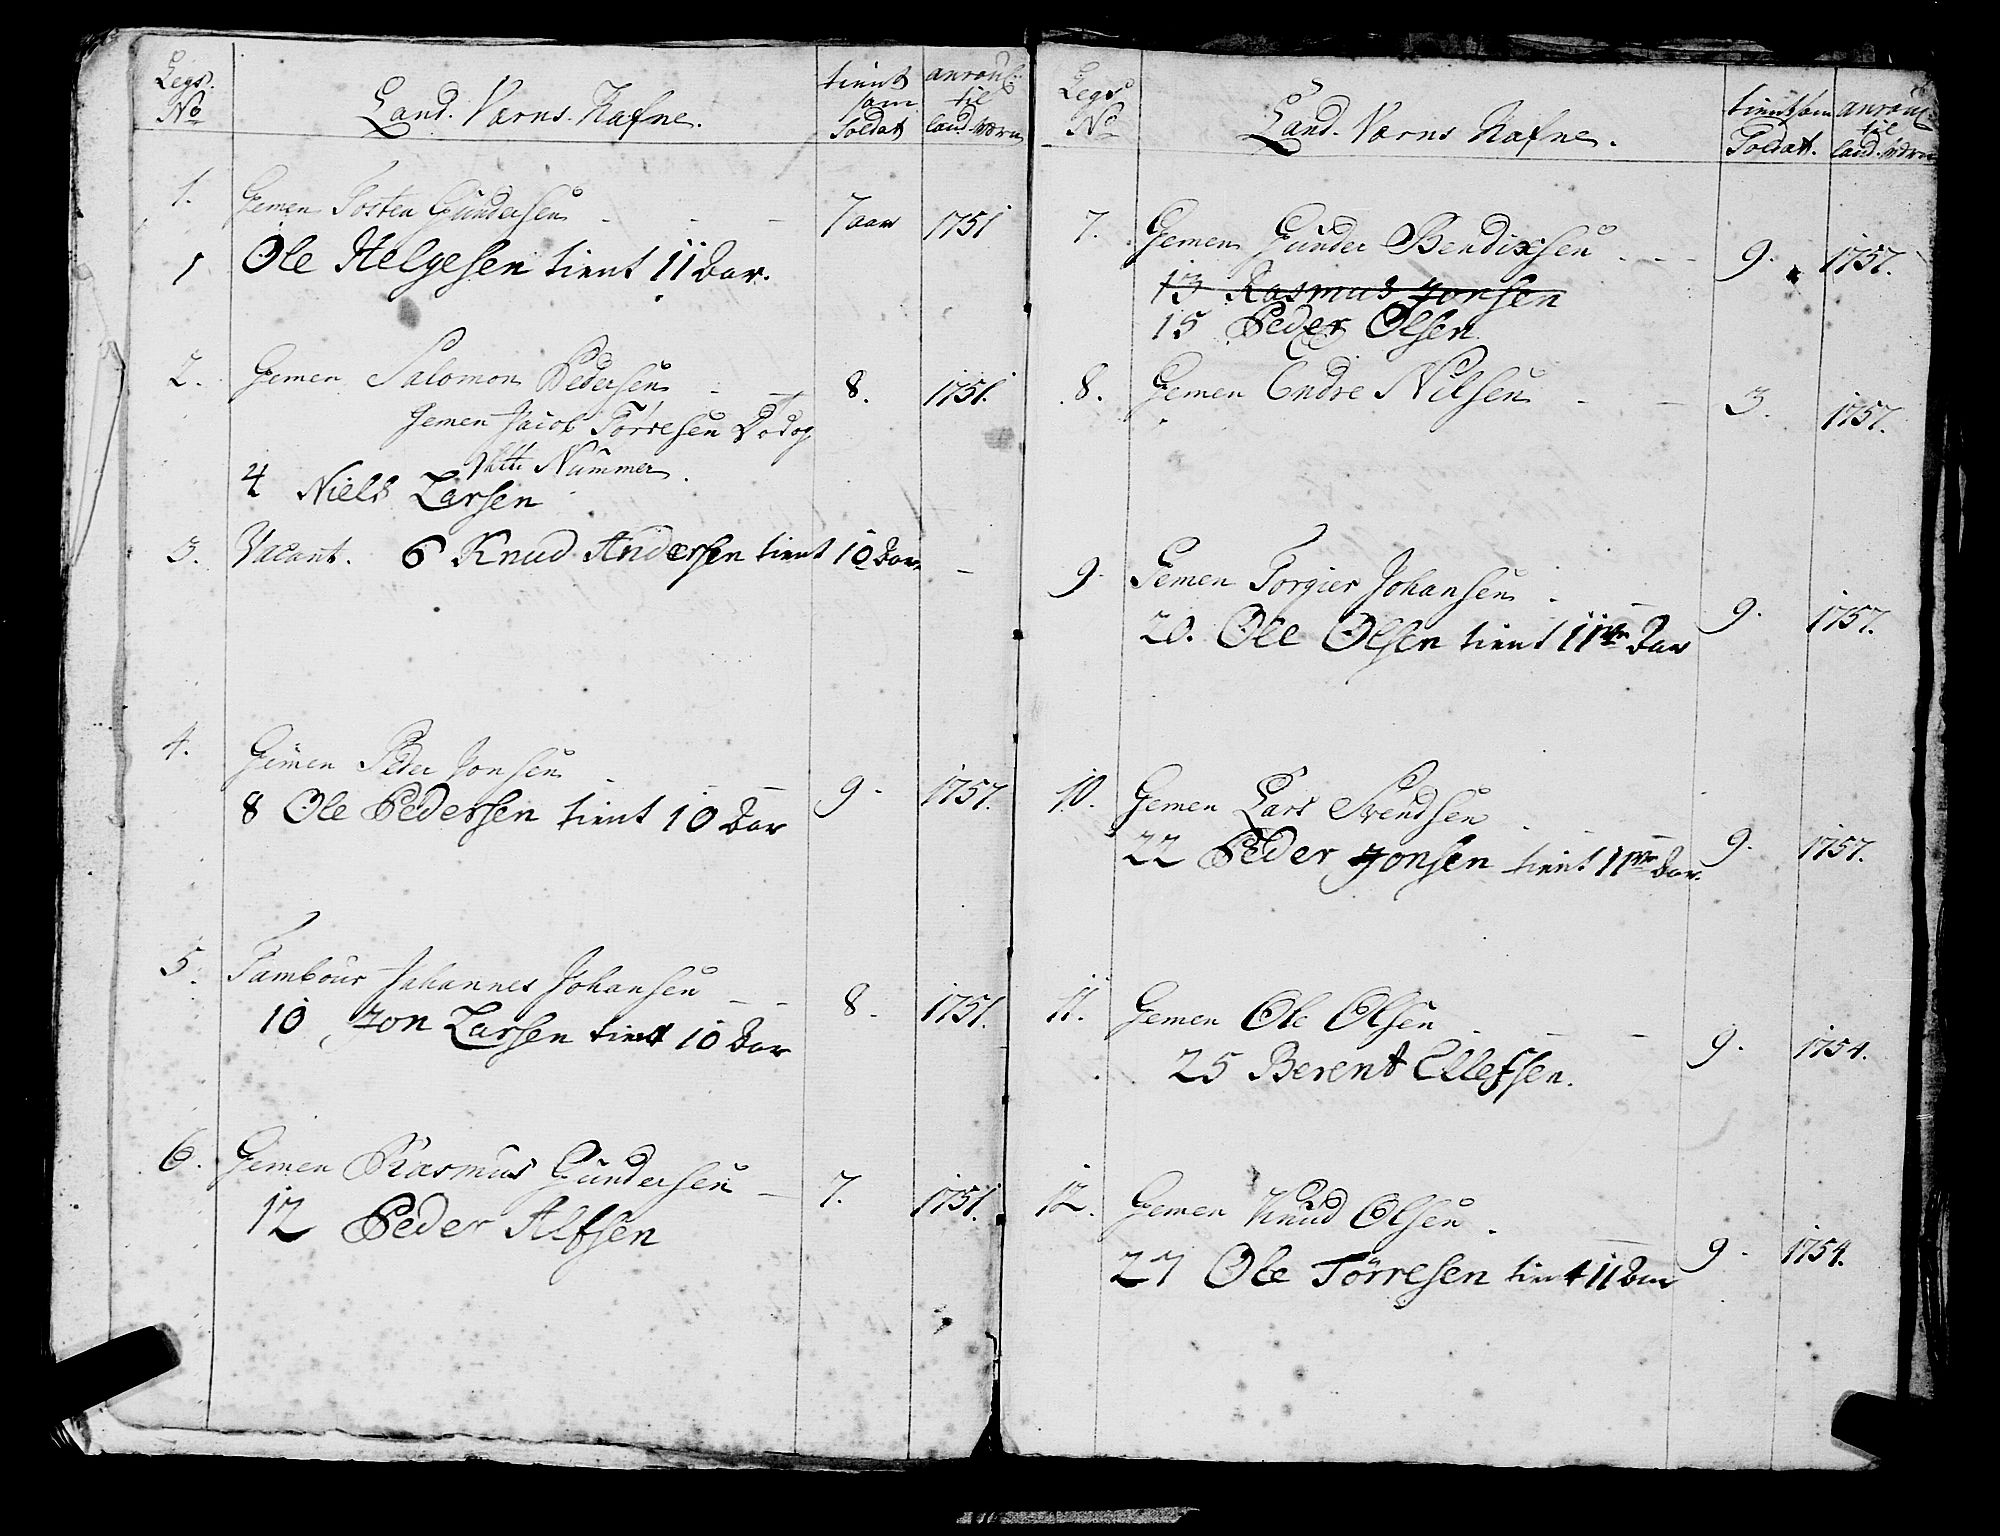 Legs. No
Land. Værns. Nafne.
tient som Soldat
anroul: til land-Værn
1. Gemen Tosten Gundersen - - - 7 aar 1751
1 Ole Helgesen tient 11 Aar.
2. Gemen Salomon Pedersen - - 8. 1751.
Gemen Jacob Törresen D. og
Nummer.
4 Niels Larsen
3. Vacant. 6 Knud Andersen tient 10 Aar. -
4. Gemen Peder Jonsen - - - 9. 1757.
8 Ole Pedersen tient 10 Aar
5. Tambour Johannes Johansen - - 8. 1751.
10 Jon Larsen tient 10 Aar
6. Gemen Rasmus Gundersen - 7. 1751.
12 Peder Alfsen
Legs No
Land. Værns Nafne.
tient som Soldat.
anroul: til land-Værn
7. Gemen Gunder Bendixsen - - - 9. 1757.
13 Rasmus Jonsen
15 Peder Olsen
8. Gemen Endre Nilsen - - 3. 1757.
9. Gemen Torgier Johansen - - 9. 1757.
20. Ole Olsen tient 11 Aar
10. Gemen Lars Svendsen - - - 9. 1757.
22 Peder Jonsen tient 11 Aar.
11. Gemen Ole Olsen - - - 9. 1754.
25 Berent Ellefsen.
12. Gemen Knud Olsen - - 9. 1754.
27 Ole Törresen tient 11 Aar